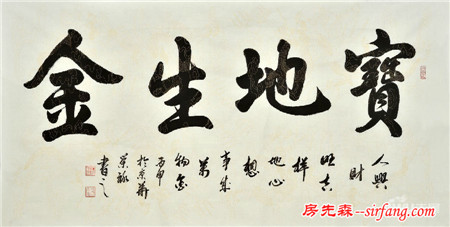 寶地生金
人興
財
旺吉
祥
地心
想
事成
萬
物
丙申
於京華
書之
房先森--sirfang.com